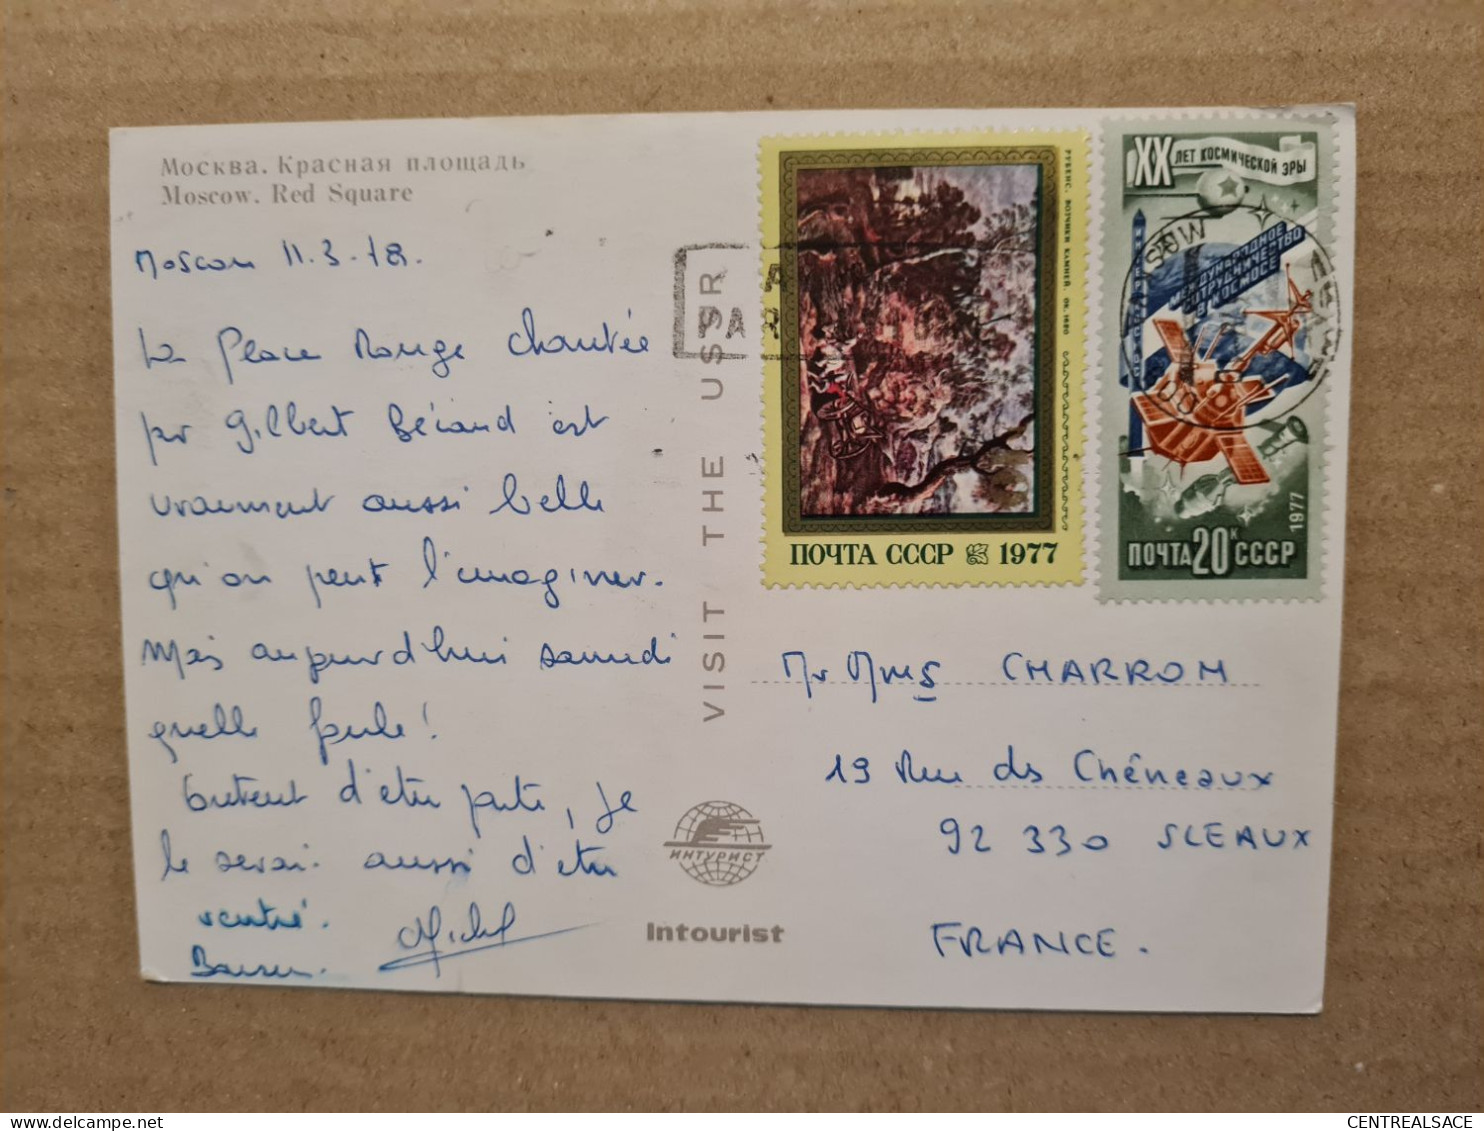 Москва. Красная площадь
Moscow. Red Square
Moscou 11.3.78.
La Place Rouge chantée
par Gilbert Bécaud est
vraiment aussi belle
qu'on peut l'imaginer.
Mais aujourd'hui samedi
quelle foule!
Content d'être parti, je
le serai aussi d'être
rentré.
Michel
VISIT THE USSR
PAR
РУБЕНС. ВОЗЧИКИ КАМНЕЙ. ОК. 1620
ПОЧТА СССР 1977
XX ЛЕТ КОСМИЧЕСКОЙ ЭРЫ
МЕЖДУНАРОДНОЕ
СОТРУДНИЧЕСТВО
В КОСМОСЕ
1977
ПОЧТА 20К СССР
Mr Mme CHARRON
19 Rue des Chéneaux
92 330 SCEAUX
FRANCE.
ИНТУРИСТ
Intourist
CENTREALSACE